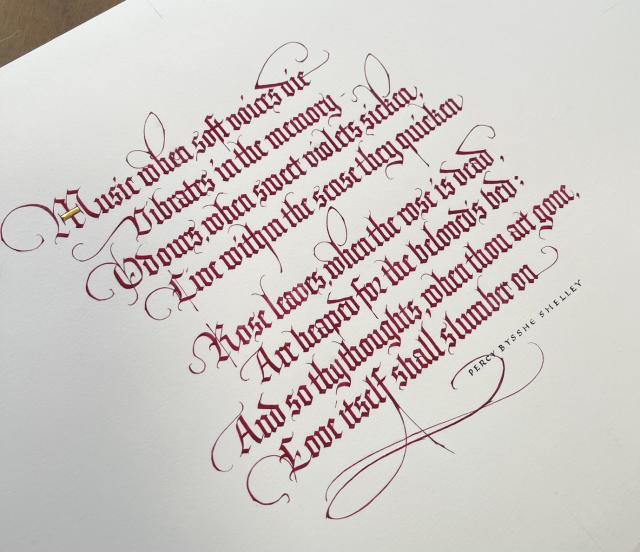 Music when soft voices die
Vibrates in the memory.
Odours, when sweet violets sicken,
Live within the sense they quicken
Rose leaves, when the rose is dead,
Are heaped for the beloved's bed:
And so thy thoughts, when thou art gone,
Love itself shall slumber on
PERCY BYSSHE SHELLEY